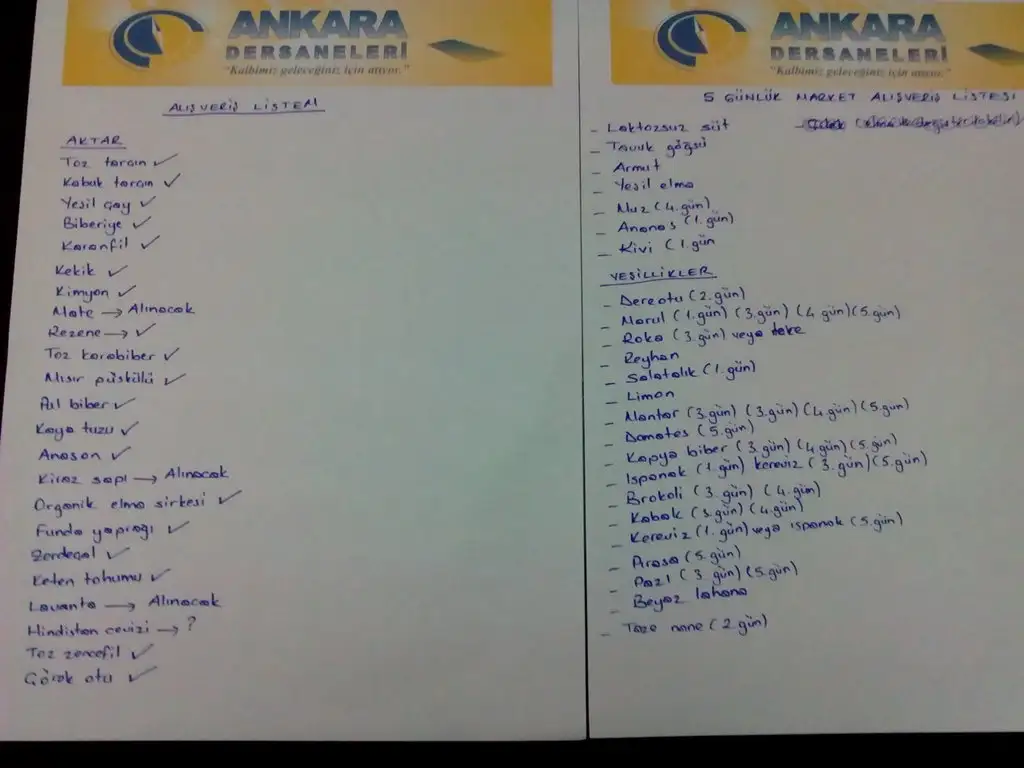 ANKARA
DERSANELERİ
"Kalbimiz geleceğiniz için atıyor."
ALIŞVERİŞ LİSTEM
AKTAR
Toz tarçın ✓
Kabuk tarçın ✓
Yeşil çay ✓
Biberiye ✓
Karanfil ✓
Kekik ✓
Kimyon ✓
Mate → Alınacak
Rezene → ✓
Toz karabiber ✓
Mısır püskülü ✓
Pul biber ✓
Kaya tuzu ✓
Anason ✓
Kiraz sapı → Alınacak
Organik elma sirkesi ✓
Funda yaprağı ✓
Zerdeçal ✓
Keten tohumu ✓
Lavanta → Alınacak
Hindistan cevizi → ?
Toz zencefil ✓
Çörek otu ✓
ANKARA
DERSANELERİ
"Kalbimiz geleceğiniz için atıyor."
5 GÜNLÜK MARKET ALIŞVERİŞ LİSTESİ
- Laktozsuz süt
- Tavuk göğsü
- Armut
- Yeşil elma
- Muz (4.gün)
- Ananas (1.gün)
- Kivi (1.gün
YEŞİLLİKLER
- Dereotu (2.gün)
- Marul (1.gün) (3.gün) (4 gün) (5.gün)
- Roka (3.gün) veya teke
- Reyhan
- Salatalık (1.gün)
- Limon
- Mantar (3.gün) (3.gün) (4.gün) (5.gün)
- Domates (5.gün)
- Kapya biber (3.gün) (4.gün) (5.gün)
- Ispanak (1.gün) kereviz (3.gün) (5.gün)
- Brokoli (3.gün) (4.gün)
- Kabak (3.gün) (4.gün)
- Kereviz (1.gün) veya ıspanak (5.gün)
- Pırasa (5.gün)
- Pazı (3 gün) (5.gün)
- Beyaz lahana
- Taze nane (2 gün)